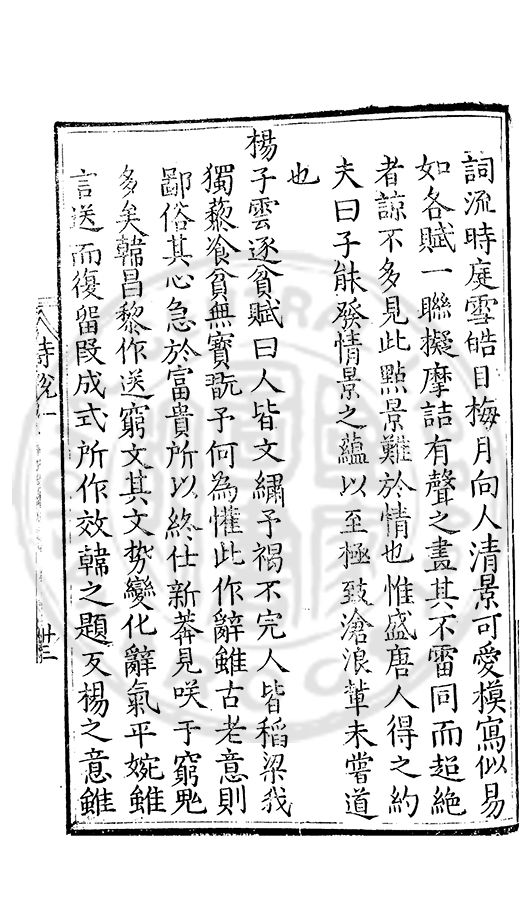 詞流時庭雪皓目梅月向人清景可愛模寫似易
如各賦一聯擬摩詰有聲之畫其不雷同而超絶
者諒不多見此點景難於情也惟盛唐人得之約
夫曰子能發情景之蘊以至極致滄浪輩未嘗道
也
楊子雲逐貧賦曰人皆文繡予褐不完人皆稻粱我
獨藜飡貧無寶翫予何為懽此作辭雖古老意則
鄙俗其心急於富貴所以終仕新莽見咲于窮鬼
多矣韓昌黎作送窮文其文勢變化辭氣平婉雖
言送而復留段成式所作效韓之題反楊之意雖
詩說一
卅三